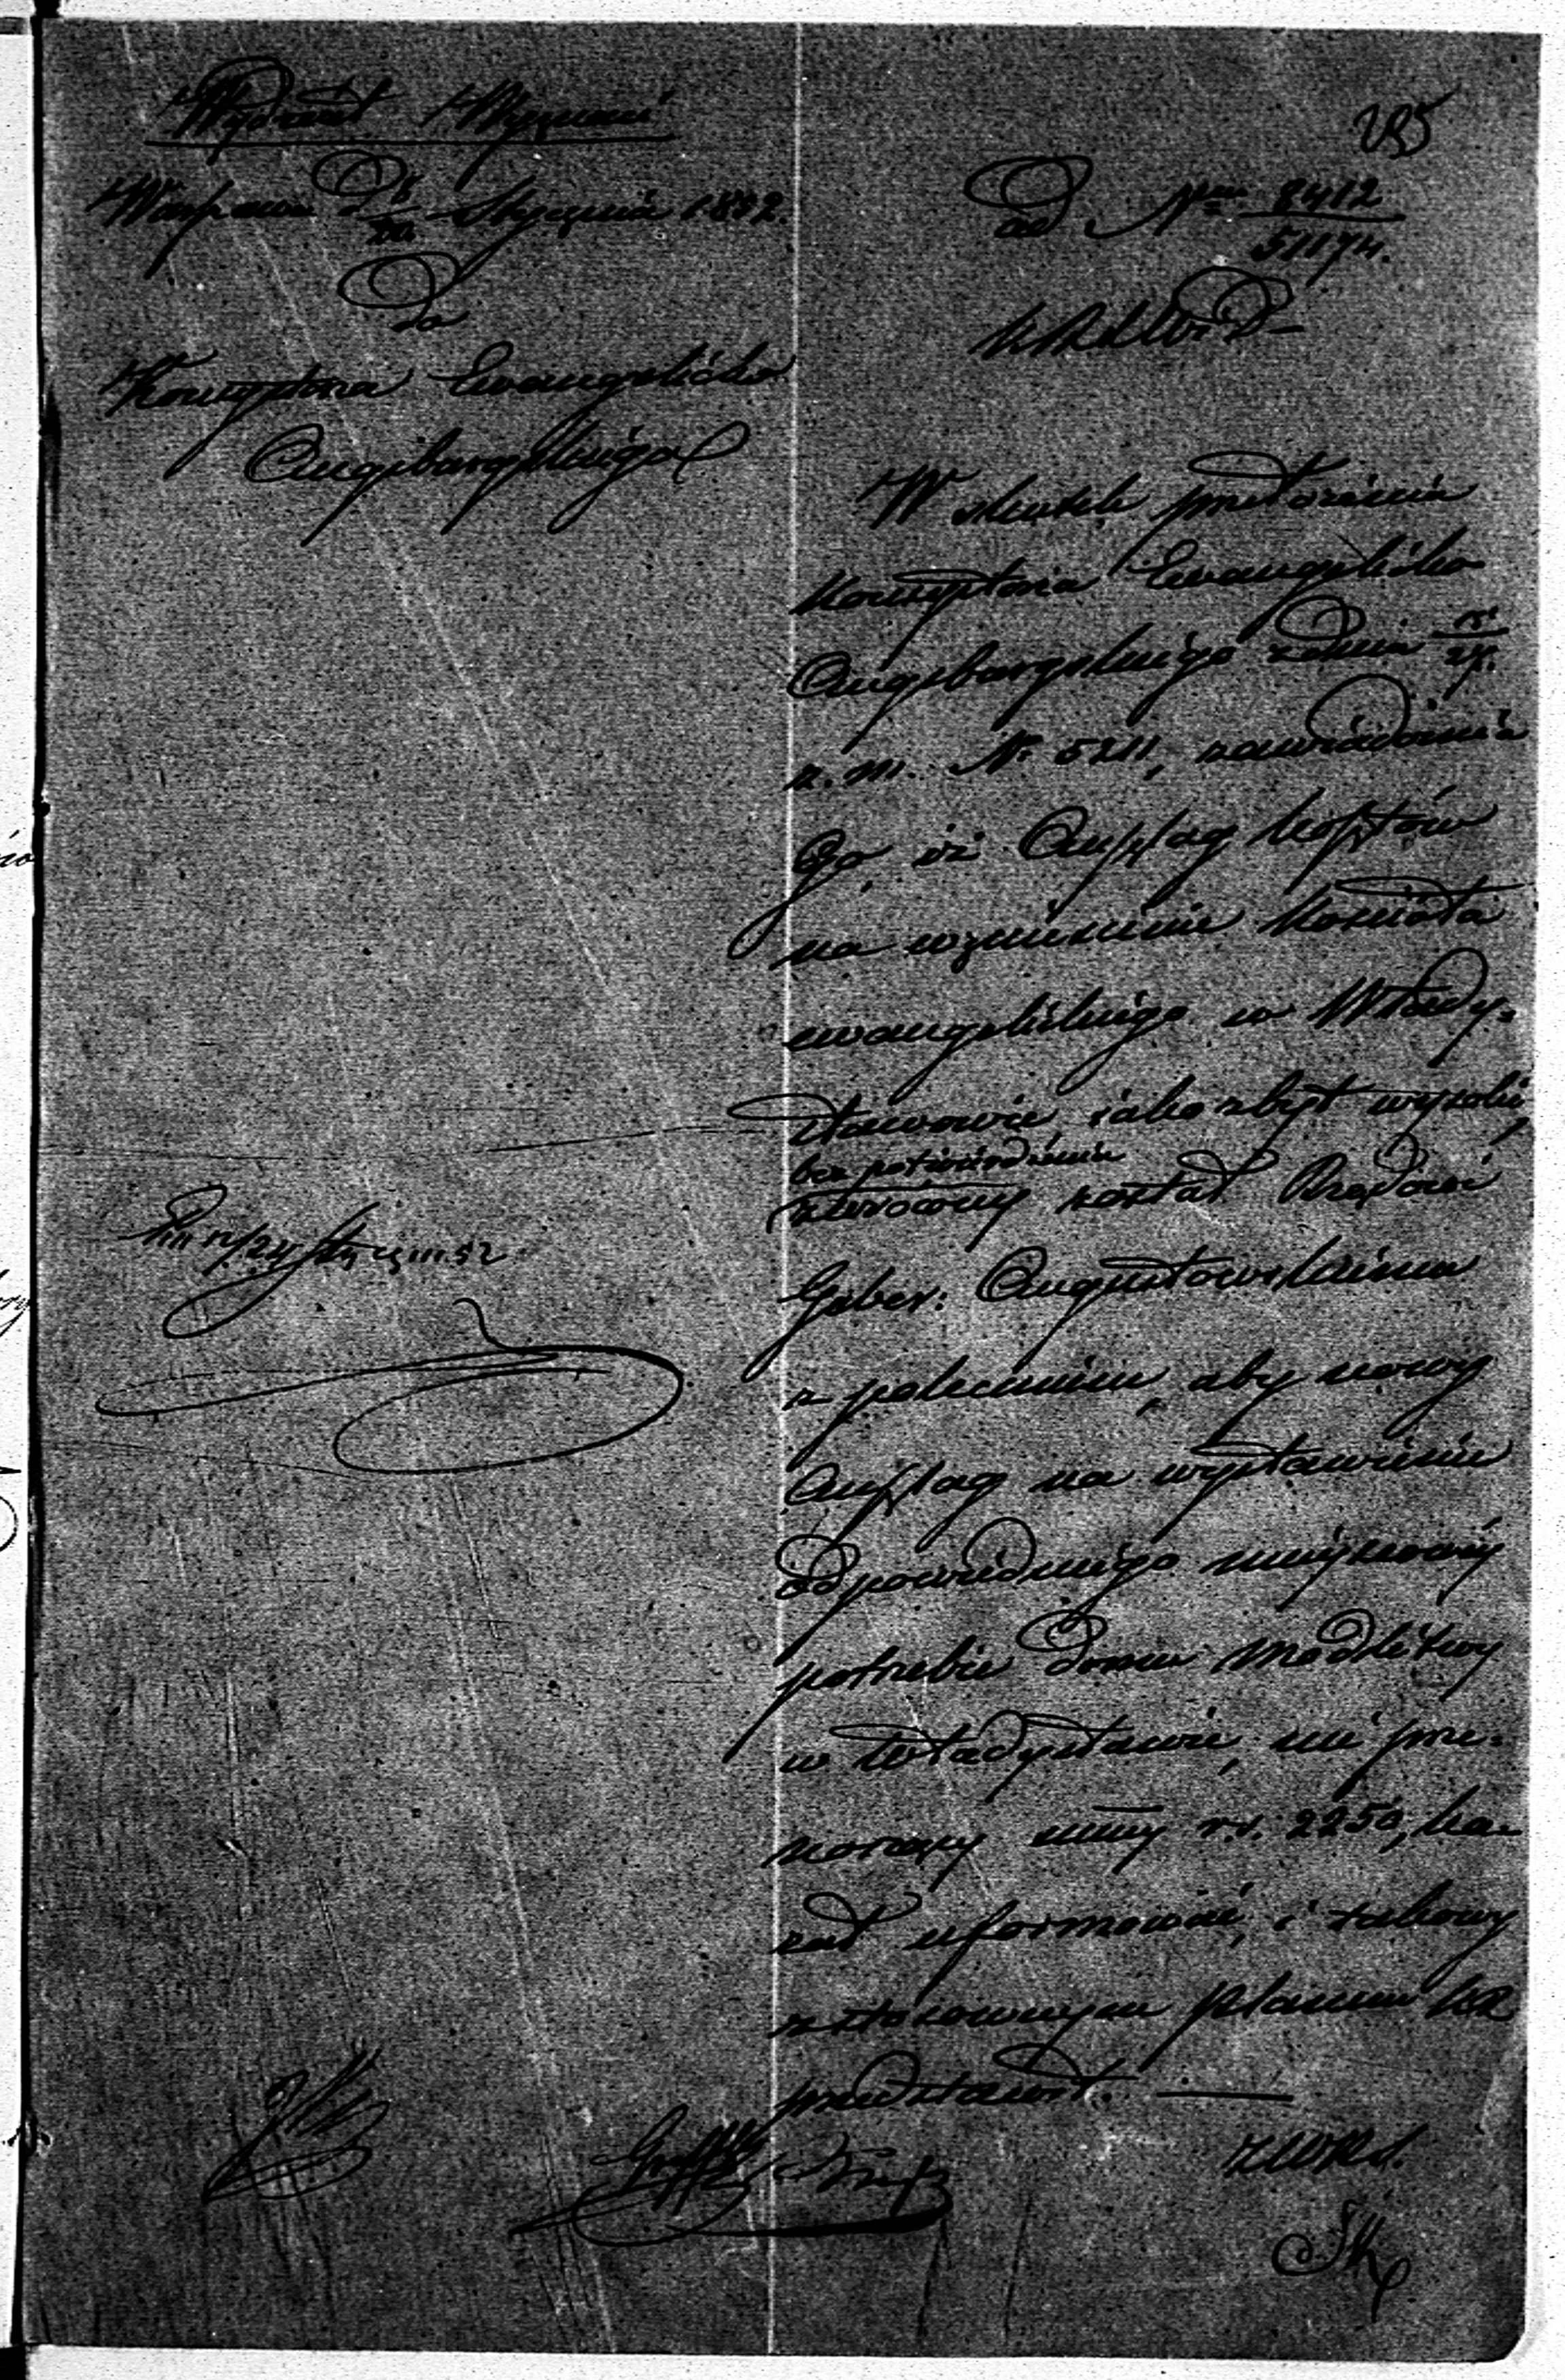 Wydział Wyznań
Warszawa d 8/20 Stycznia 1852.
Do
Konsystorza Ewangelicko
Augsburgskiego
285
ad Nrum 8412/51174.
W skutek przełożenia
Konsystorza Ewangelicko
Augsburgskiego z dnia
z. m. N. 5211, zawiadamia
Go, iż Anszlag kosztów
na wzniesienie kościoła
ewangelickiego w Włady-
sławowie, jako zbyt wysoki
bez potwierdzenia
zwrócony został Rządowi
Guber: Augustowskiemu
z poleceniem, aby nowy
Anszlag na wystawienie
odpowiedniego miejscowéj
potrzebie domu modlitwy
w Władysławowie, nie prze-
noszący summy r.s. 2250, ka-
zał uformować, i takowy
z stosownym planem KR
przedstawił.